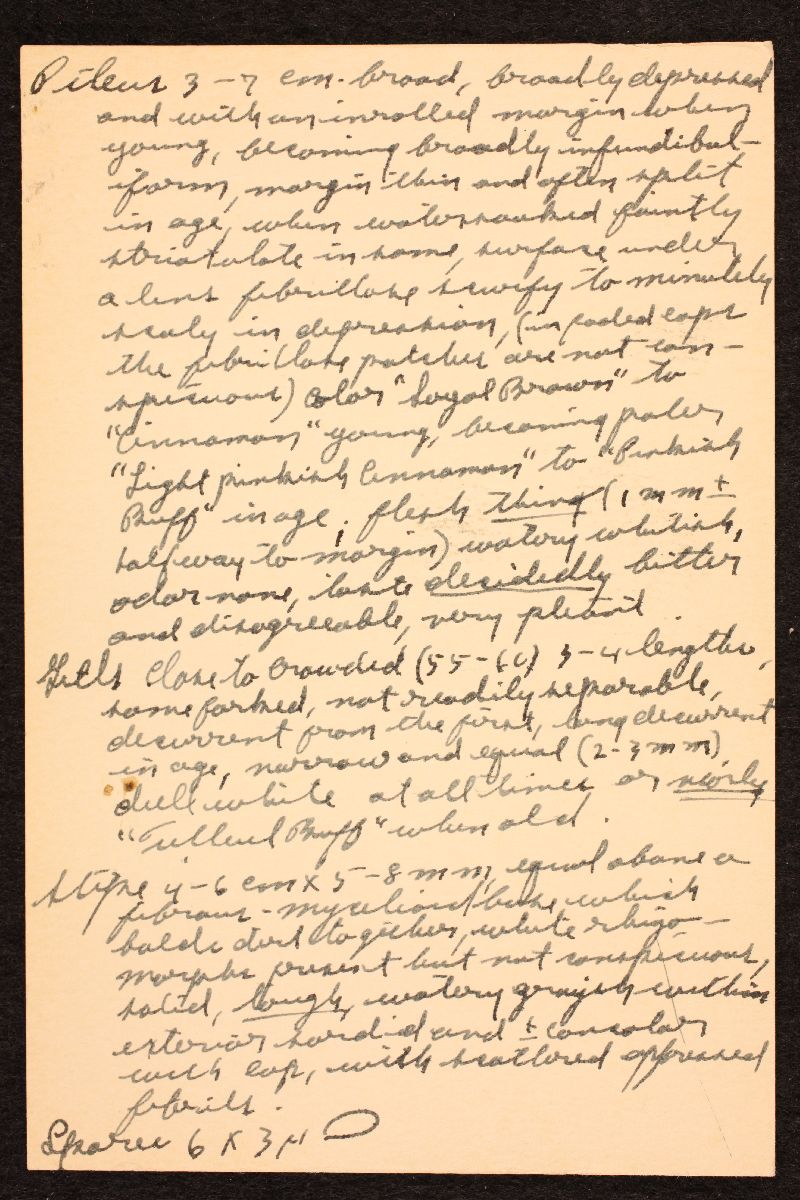 Pileus 3 – 7 cm. broad, broadly depressed
and with an inrolled margin when
young, becoming broadly infundibul-
iform, margin thin and often split
in age, when watersoaked faintly
striatulate in some, surface under
a lens fibrillose scurfy to minutely
scaly in depression, (in faded caps
the fibrillose patches are not con-
spicuous) color "Sayal Brown" to
"Cinnamon" young, becoming paler
"Light pinkish Cinnamon" to "Pinkish
Buff" in age. flesh thin (1 mm ±
halfway to margin) watery whitish,
odor none, taste decidedly bitter
and disagreeable, very pliant.
Gills close to crowded (55-66) 3-4 lengths,
some forked, not readily separable,
decurrent from the first, long decurrent
in age, narrow and equal (2-3 mm),
dull white at all times or nearly
"Tilleul Buff" when old.
Stipe 4-6 cm X 5-8 mm, equal above a
fibrous-mycelioid base which
holds dirt together, white rhizo-
morphs present but not conspicuous,
solid, tough, watery grayish within
exterior sordid and ± concolor
with cap, with scattered appressed
fibrils.
Spores 6 X 3 µ